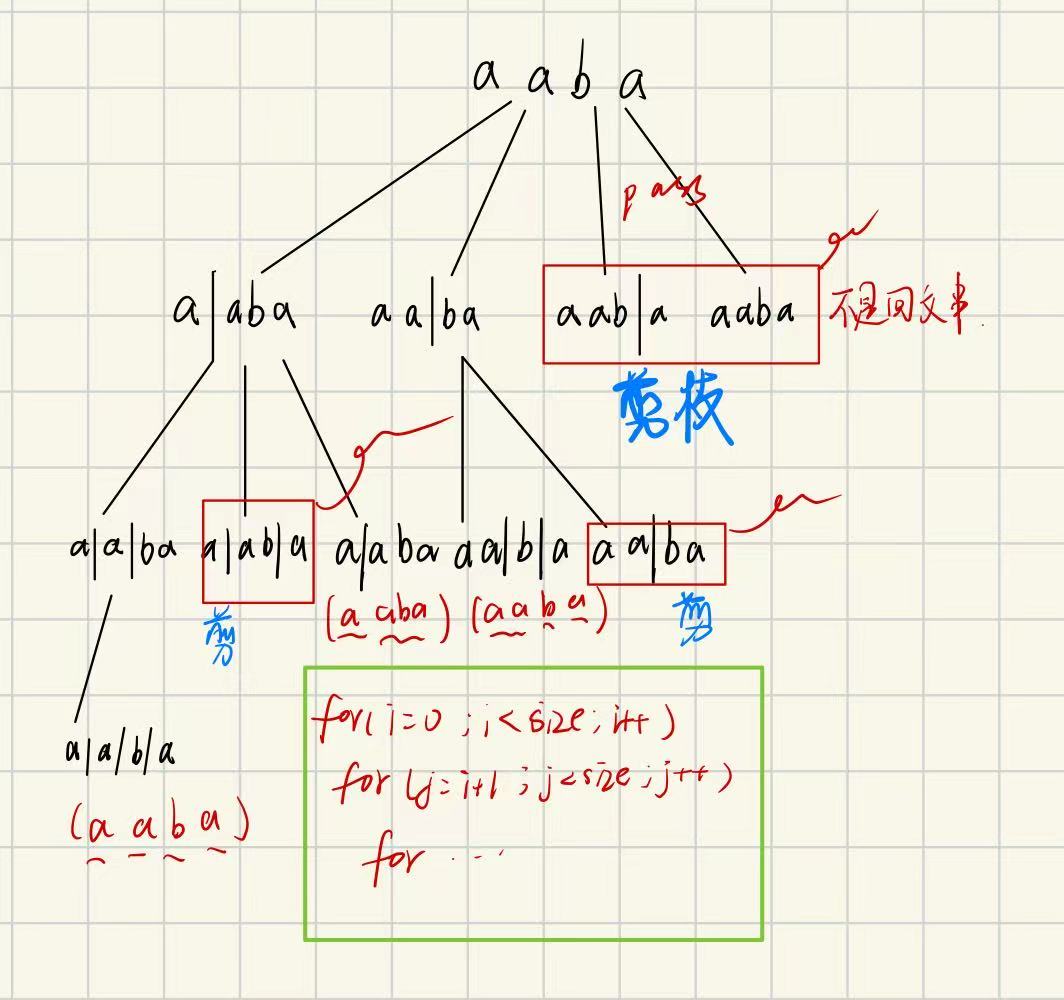 a a b a
pass
a|aba aa|ba aab|a aaba 不是回文串.
剪枝
a|a|ba a|ab|a a|aba aa|b|a aa|ba
剪 (a aba) (aa b a) 剪
for(i=0;i<size;i++)
a|a|b|a
for(j=i+1;j<size;j++)
(a a b a)
for ...